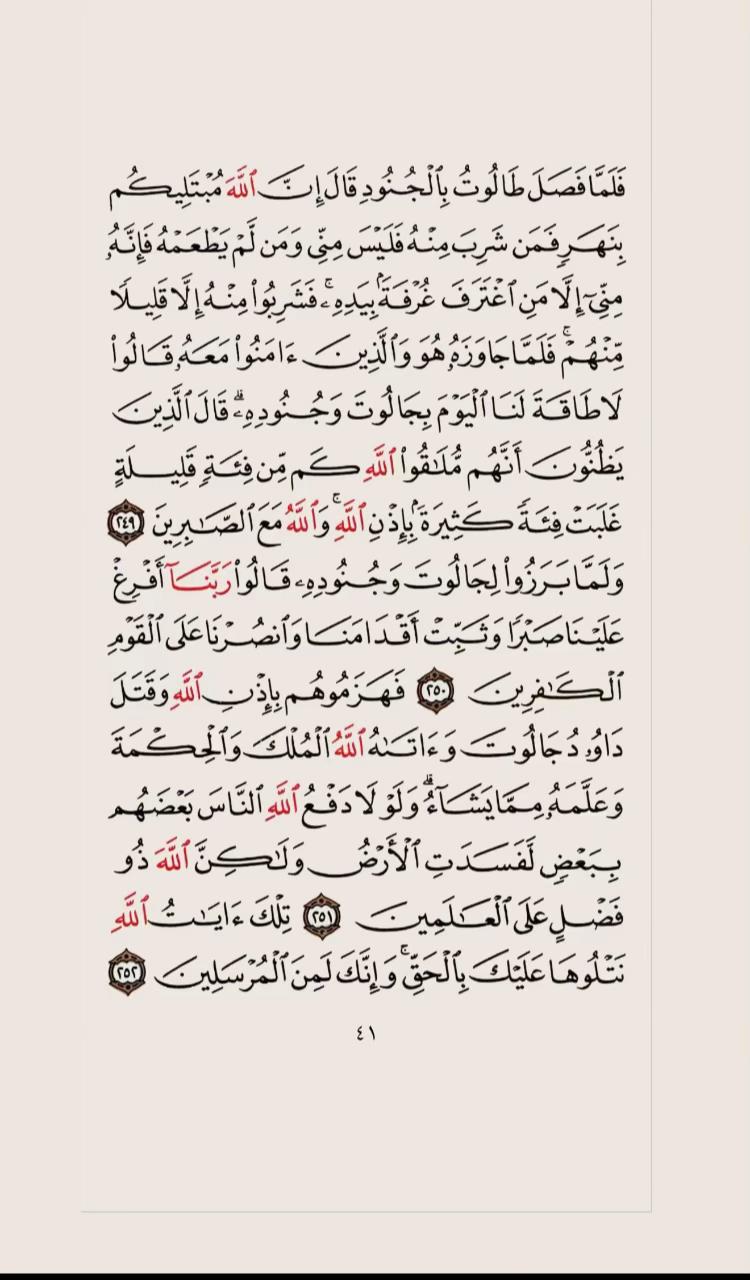 فَلَمَّا فَصَلَ طَالُوتُ بِٱلْجُنُودِ قَالَ إِنَّ ٱللَّهَ مُبْتَلِيكُم
بِنَهَرٍ فَمَن شَرِبَ مِنْهُ فَلَيْسَ مِنِّى وَمَن لَّمْ يَطْعَمْهُ فَإِنَّهُۥ
مِنِّىٓ إِلَّا مَنِ ٱغْتَرَفَ غُرْفَةًۢ بِيَدِهِۦۚ فَشَرِبُوا۟ مِنْهُ إِلَّا قَلِيلًا
مِّنْهُمْۚ فَلَمَّا جَاوَزَهُۥ هُوَ وَٱلَّذِينَ ءَامَنُوا۟ مَعَهُۥ قَالُوا۟
لَا طَاقَةَ لَنَا ٱلْيَوْمَ بِجَالُوتَ وَجُنُودِهِۦۚ قَالَ ٱلَّذِينَ
يَظُنُّونَ أَنَّهُم مُّلَٰقُوا۟ ٱللَّهِ كَم مِّن فِئَةٍ قَلِيلَةٍ
غَلَبَتْ فِئَةً كَثِيرَةًۢ بِإِذْنِ ٱللَّهِۚ وَٱللَّهُ مَعَ ٱلصَّٰبِرِينَ ٢٤٩
وَلَمَّا بَرَزُوا۟ لِجَالُوتَ وَجُنُودِهِۦ قَالُوا۟ رَبَّنَآ أَفْرِغْ
عَلَيْنَا صَبْرًا وَثَبِّتْ أَقْدَامَنَا وَٱنصُرْنَا عَلَى ٱلْقَوْمِ
ٱلْكَٰفِرِينَ ٢٥٠ فَهَزَمُوهُم بِإِذْنِ ٱللَّهِ وَقَتَلَ
دَاوُۥدُ جَالُوتَ وَءَاتَىٰهُ ٱللَّهُ ٱلْمُلْكَ وَٱلْحِكْمَةَ
وَعَلَّمَهُۥ مِمَّا يَشَآءُۗ وَلَوْلَا دَفْعُ ٱللَّهِ ٱلنَّاسَ بَعْضَهُم
بِبَعْضٍ لَّفَسَدَتِ ٱلْأَرْضُ وَلَٰكِنَّ ٱللَّهَ ذُو
فَضْلٍ عَلَى ٱلْعَٰلَمِينَ ٢٥١ تِلْكَ ءَايَٰتُ ٱللَّهِ
نَتْلُوهَا عَلَيْكَ بِٱلْحَقِّۚ وَإِنَّكَ لَمِنَ ٱلْمُرْسَلِينَ ٢٥٢
٤١